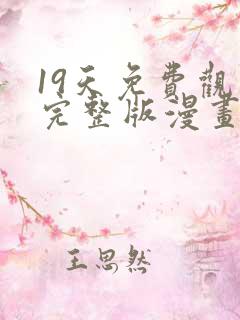 19天免費觀
完整版漫畫
王思然